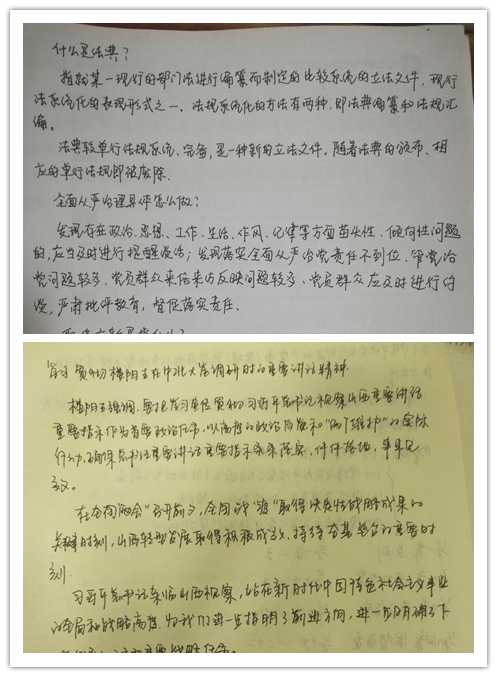 什么是法典？
指就某一现行的部门法进行编纂而制定的比较系统的立法文件，现行
法系统化的表现形式之一，法规系统化的方法有两种，即法典编纂和法规汇
编。
法典较单行法规系统、完备，是一种新的立法文件，随着法典的颁布，相
应的单行法规即被废除.
全面从严治理具体怎么做？
发现存在政治、思想、工作、生活、作风、纪律等方面苗头性、倾向性问题
的，应当及时进行提醒谈话；发现落实全面从严治党责任不到位、管党治
党问题较多、党员群众来信来访反映问题较多、党员群众应及时进行约
谈，严肃批评教育，督促落实责任.
学习贯彻楼阳生在中北大学调研时的重要讲话精神
楼阳生强调，要把学习贯彻习近平总书记视察山西重要讲话
重要指示作为首要政治任务，以高度的政治自觉和"两个维护"的实际
行动，确保总书记重要讲话重要指示条条落实、件件落地、事事见
效。
在全国两会召开前夕，全国战"疫"取得决定性战略成果的
关键时刻，山西转型发展取得积极成效、持续夯基垒台的重要时
刻.
习近平总书记亲临山西视察，站在新时代中国特色社会主义事业
的全局和战略高度，为我们进一步指明了前进方向，进一步明确了下